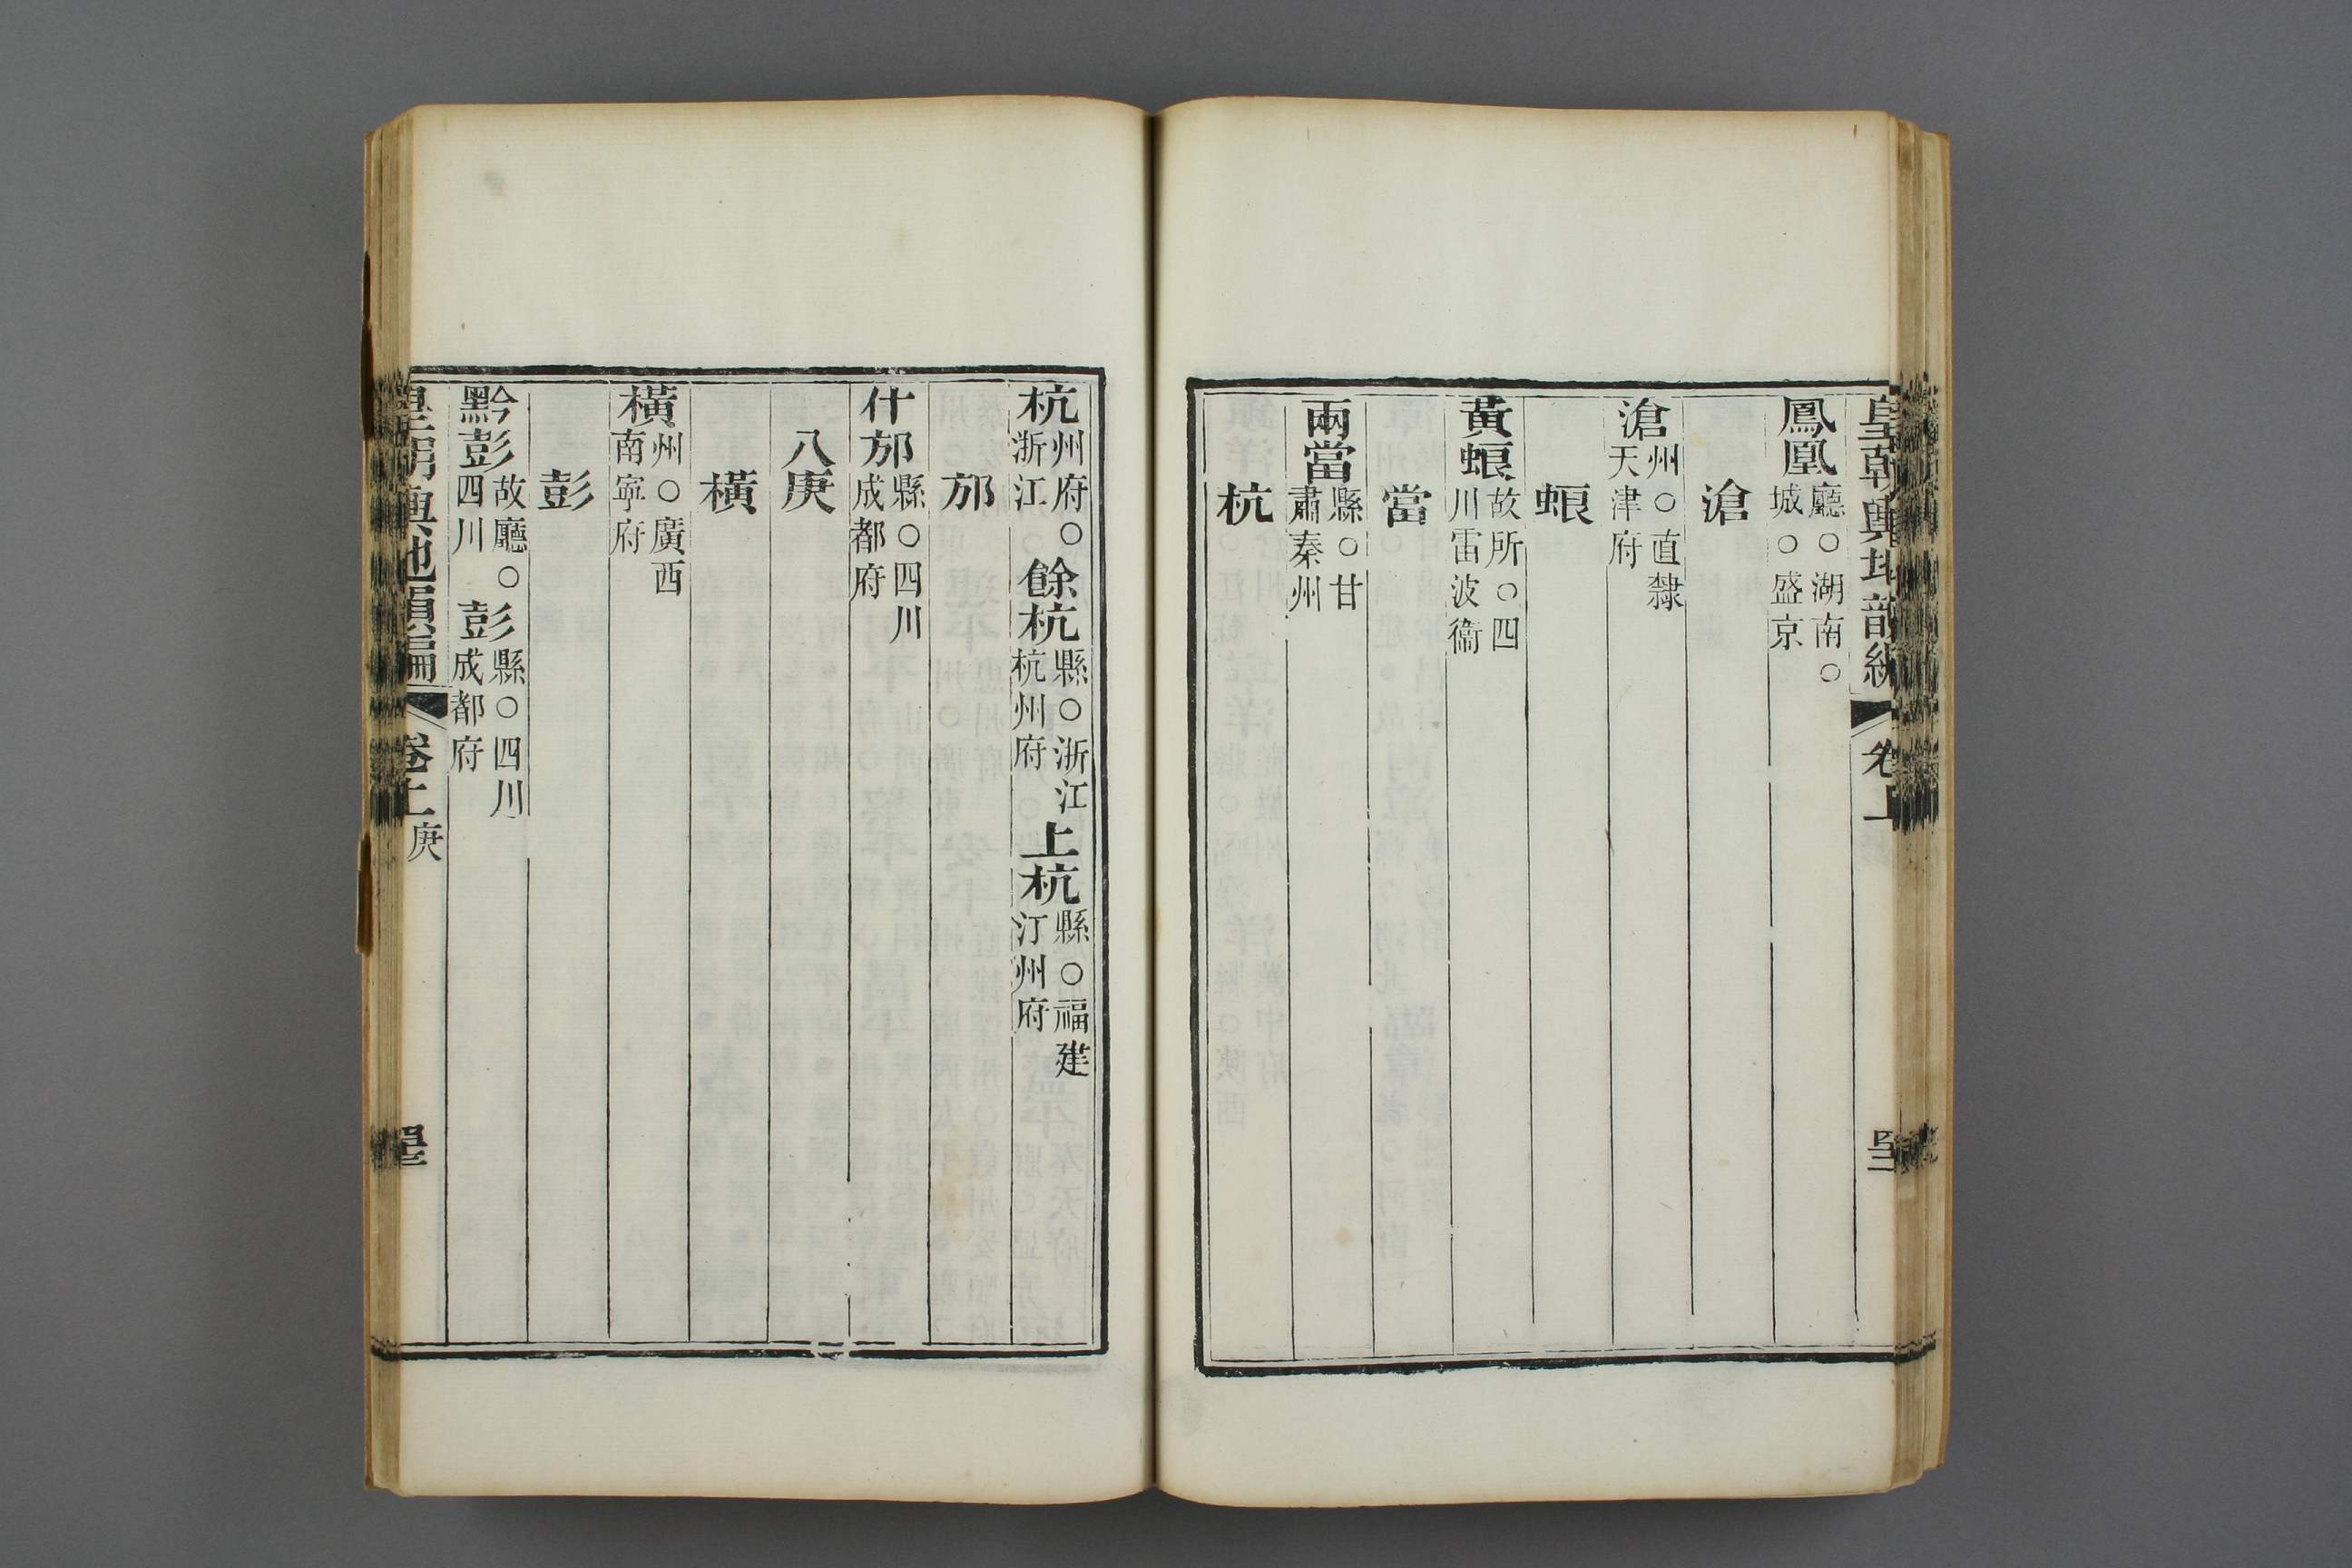 皇朝輿地韻編 卷上
鳳凰廳○湖南○城○盛京
滄
滄州○直隸天津府
蜋
黃蜋故所○四川雷波衞
當
兩當縣○甘肅秦州
杭
杭州府○浙江 餘杭縣○浙江杭州府 上杭縣○福建汀州府
邡
什邡縣○四川成都府
八庚
橫
橫州○廣西南寧府
彭
黔彭故廳○四川 彭縣○四川成都府
皇朝輿地韻編 卷上 庚